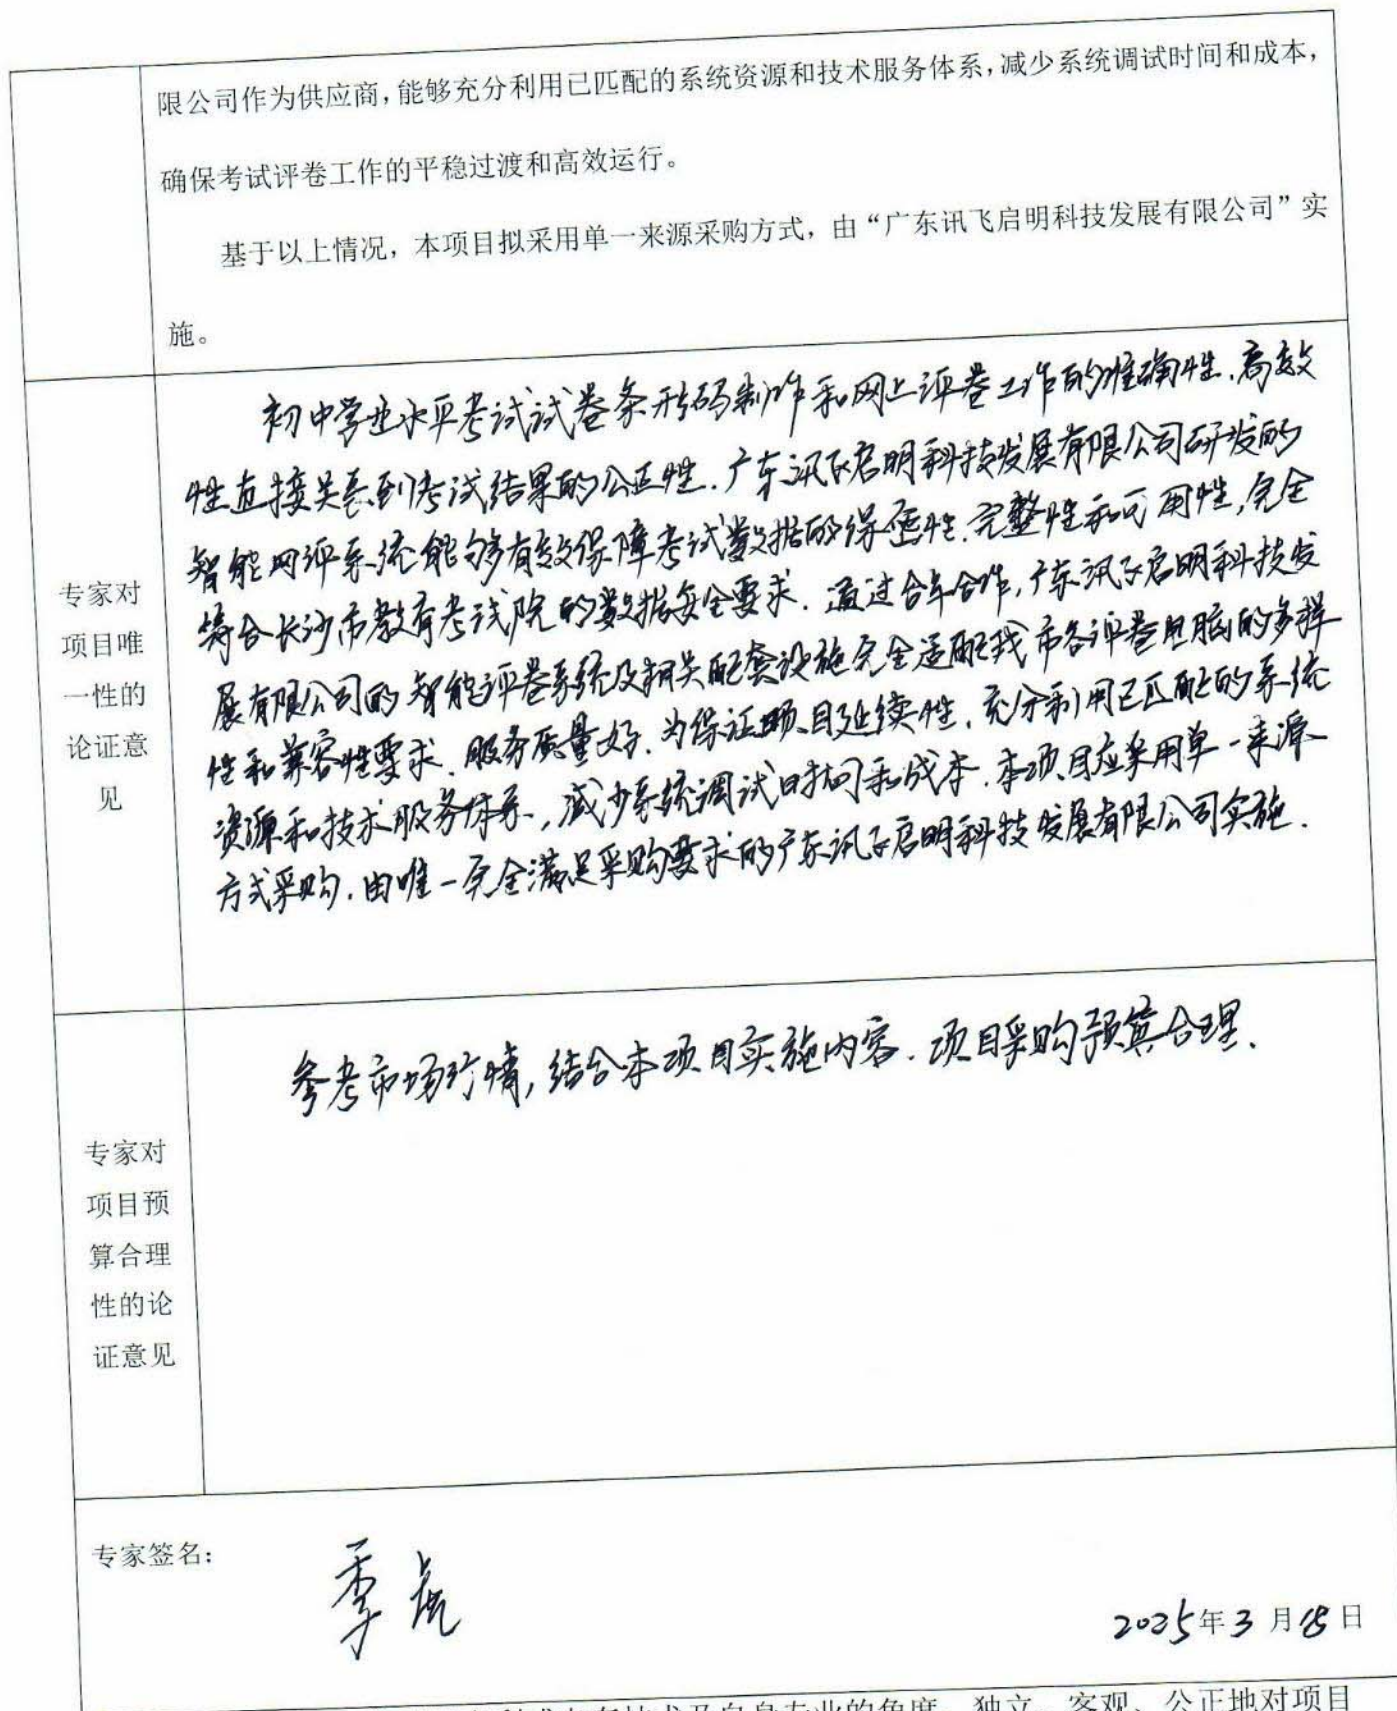 限公司作为供应商，能够充分利用已匹配的系统资源和技术服务体系，减少系统调试时间和成本，
确保考试评卷工作的平稳过渡和高效运行。
基于以上情况，本项目拟采用单一来源采购方式，由“广东讯飞启明科技发展有限公司”实
施。
专家对
项目唯
一性的
论证意
见
初中学业水平考试试卷条形码制作和网上评卷工作的准确性、高效
性直接关系到考试结果的公正性.广东讯飞启明科技发展有限公司研发的
智能网评系统能够有效保障考试数据的保密性、完整性和可用性,完全
符合长沙市教育考试院的数据安全要求.通过合年合作,广东讯飞启明科技发
展有限公司的智能评卷系统及相关配套设施完全适配我市各评卷电脑的多样
性和兼容性要求、服务质量好.为保证项目延续性,充分利用已匹配的系统
资源和技术服务体系,减少系统调试时间和成本.本项目应采用单一来源
方式采购.由唯一完全满足采购要求的广东讯飞启明科技发展有限公司实施.
专家对
项目预
算合理
性的论
证意见
参考市场行情,结合本项目实施内容.项目采购预算合理.
专家签名：
季虎
2025年3月18日
技术及自身专业的角度，独立、客观、公正地对项目